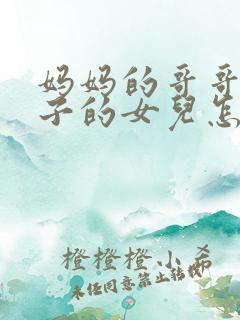 妈妈的哥哥
子的女兒怎
橙橙橙小希
未经同意禁止转载